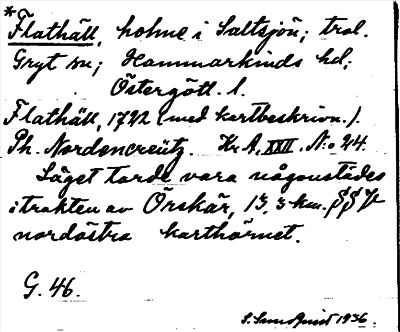 *Flathäll, holme i Saltsjön; trol.
Gryt sn; Hammarkinds hd;
Östergötl. l.
Flathäll, 1792 (med kartbeskrivn.).
Ph. Nordencreütz. Kr. A. XXII, N:o 24.
Läget torde vara någonstädes
i trakten av Örskär, 13,3 km.
nordöstra karthörnet.
G. 46.
1936.